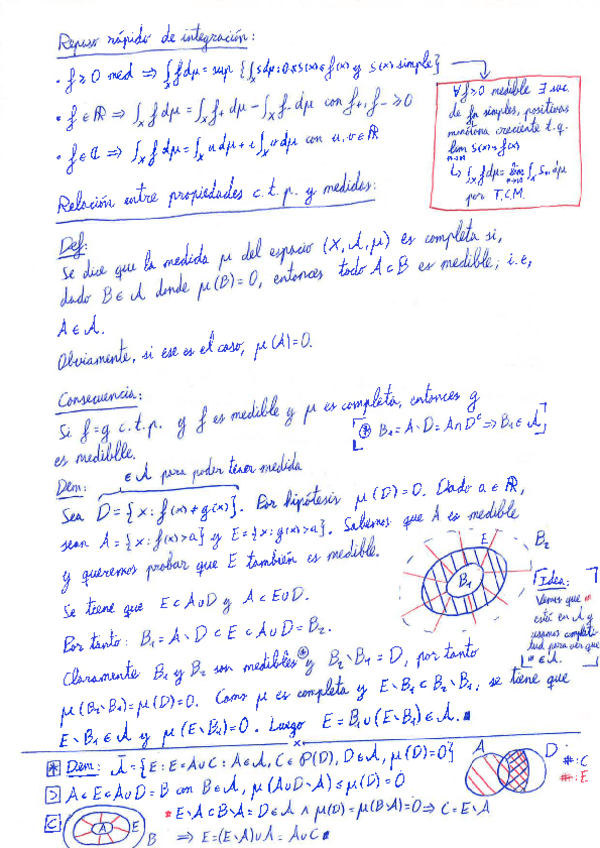 Repaso rápido de integración:
• f ≥ 0 med ⇒ ∫_X f dμ = sup {∫_X s dμ : 0 ≤ s(x) ≤ f(x) y s(x) simple}
• f ∈ ℝ ⇒ ∫_X f dμ = ∫_X f+ dμ − ∫_X f- dμ con f+, f- ≥ 0
• f ∈ ℂ ⇒ ∫_X f dμ = ∫_X u dμ + i ∫_X v dμ con u, v ∈ ℝ
∀ f ≥ 0 medible ∃ suc.
de fn simples, positivas
monótona creciente t.q.
lim s(x) = f(x)
n→∞
↳ ∫_X f dμ = lim ∫_X Sn dμ
n→∞
por T.C.M.
Relación entre propiedades c.t.p. y medidas:
Def:
Se dice que la medida μ del espacio (X, A, μ) es completa si,
dado B ∈ A donde μ(B) = 0, entonces todo A ⊂ B es medible; i.e,
A ∈ A.
Obviamente, si ese es el caso, μ(A) = 0.
Consecuencia:
Si f = g c.t.p. y f es medible y μ es completa, entonces g
es medible.
⊛ B₁ = A∖D = A∩Dᶜ ⇒ B₁ ∈ A
Dem: ∈ A para poder tener medida
Sea D = {x : f(x) ≠ g(x)}. Por hipótesis μ(D) = 0. Dado a ∈ ℝ,
sean A = {x : f(x) > a} y E = {x : g(x) > a}. Sabemos que A es medible
y queremos probar que E también es medible.
Se tiene que E ⊂ A∪D y A ⊂ E∪D.
Por tanto: B₁ = A∖D ⊂ E ⊂ A∪D = B₂.
E
B₂
B₁
Idea:
Vemos que
está en A y
usamos completi-
tud para ver que
∈ A.
Claramente B₁ y B₂ son medibles⊛ y B₂∖B₁ = D, por tanto
μ(B₂∖B₁) = μ(D) = 0. Como μ es completa y E∖B₁ ⊂ B₂∖B₁, se tiene que
E∖B₁ ∈ A y μ(E∖B₁) = 0. Luego E = B₁∪(E∖B₁) ∈ A.
* Dem: Ā = {E : E = A∪C : A ∈ A, C ∈ P(D), D ∈ A, μ(D) = 0}
⊃ A ⊂ E ⊂ A∪D = B con B ∈ A, μ(A∪D∖A) ≤ μ(D) = 0
A
D
#: C
#: E
⊂
A
E
B
* E∖A ⊂ B∖A = D ∈ A ∧ μ(D) = μ(B∖A) = 0 ⇒ C = E∖A
⇒ E = (E∖A)∪A = A∪C